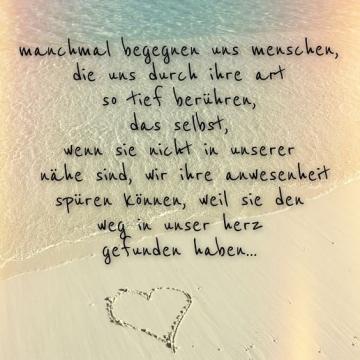 manchmal begegnen uns menschen,
die uns durch ihre art
so tief berühren,
das selbst,
wenn sie nicht in unserer
nähe sind, wir ihre anwesenheit
spüren können, weil sie den
weg in unser herz
gefunden haben...